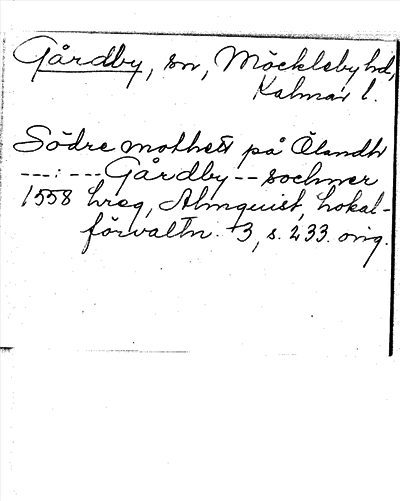 Gårdby, sn, Möckleby hd,
Kalmar l.
Södre mothett på Ölandh
---:---Gårdby--sochner
1558 hreg, Almquist, Lokal-
förvaltn. 3, s. 233. orig.